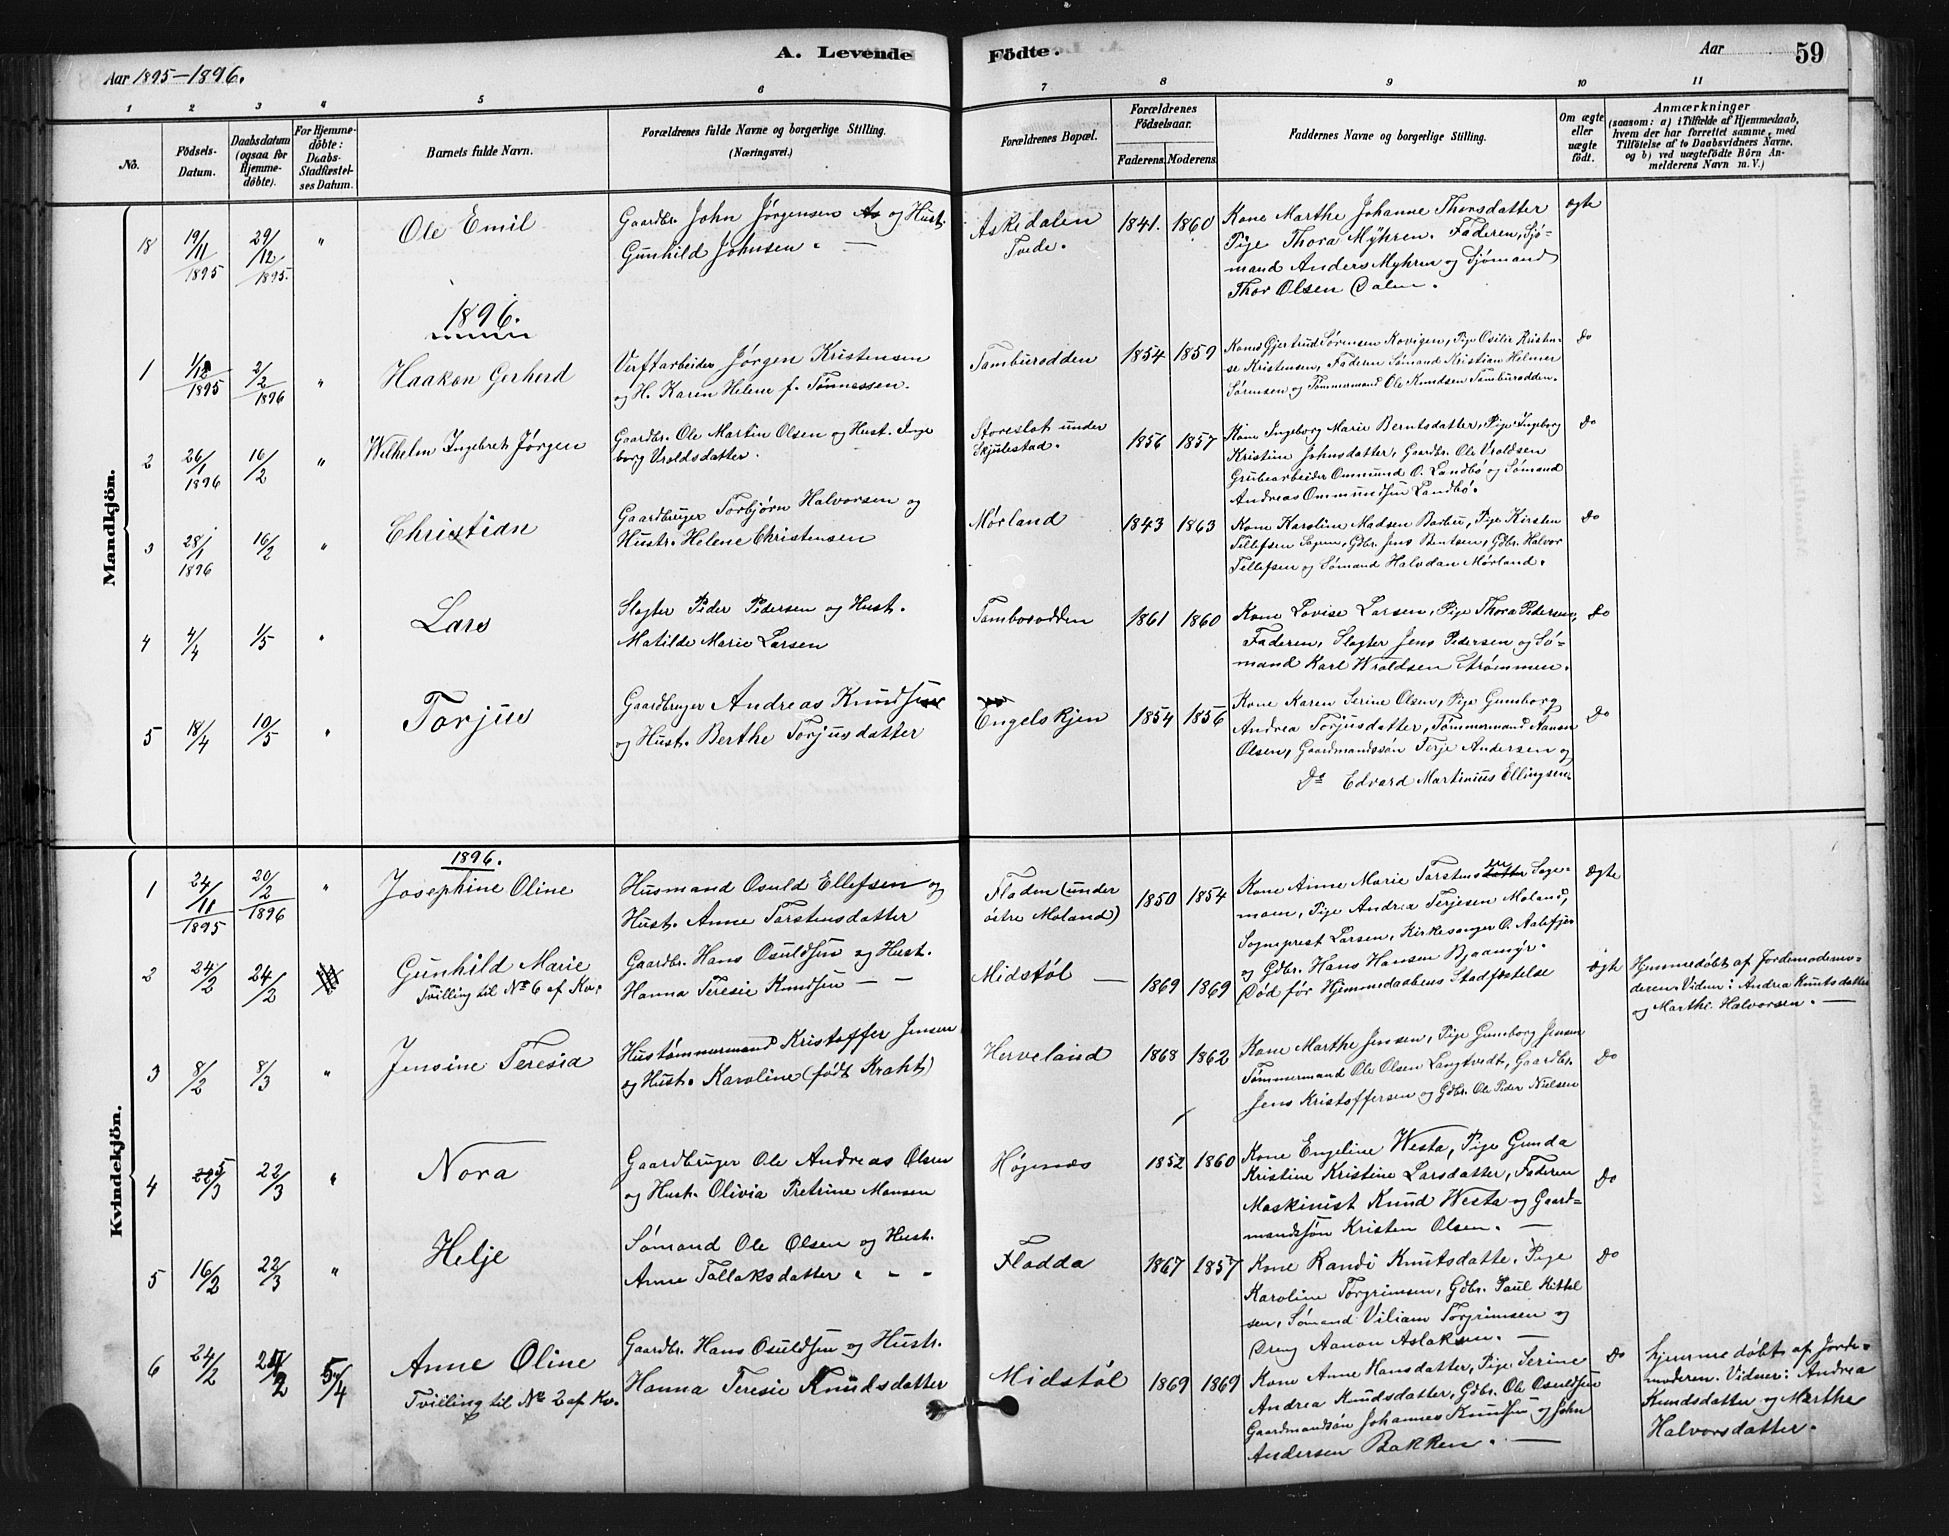 Aar 1895–1896.
A. Levende Födte.
Aar
59
1 2 3 4 5 6 7 8 9 10 11
No.
Födsels-
Datum.
Daabsdatum
(ogsaa for
Hjemme-
döbte).
For Hjemme-
döbte:
Daabs-
Stadfæstel-
ses Datum.
Barnets fulde Navn.
Forældrenes fulde Navne og borgerlige Stilling.
(Næringsvei.)
Forældrenes Bopæl.
Forældrenes
Födselsaar.
Faderens. Moderens.
Faddernes Navne og borgerlige Stilling.
Om ægte
eller
uægte
födt.
Anmærkninger
(saasom: a) i Tilfælde af Hjemmedaab,
hvem der har forrettet samme, med
Tilföielse af to Daabsvidners Navne,
og b) ved uægtefödte Börn An-
melderens Navn m. V.)
Mandkjön.
18
19/11 1895
29/12 1895.
"
Ole Emil
Gaardbr. John Jørgensen As og Hust.
Gunhild Johnsen. —
Askedalen
Tvede.
1841. 1860
Kone Marthe Johanne Thorsdatter
Pige Thora Myhren. Faderen, Sjø-
mand Anders Myhren og Sjømand
Thor Olsen Dalen.
ægte
1896.
1
1/12 1895
2/2 1896
"
Haakon Gerherd
Verftarbeider Jørgen Kristensen
og H. Karen Helene f. Tønnessen.
Tamburodden
1854 1859
Kone Gjertrud Sørensen Kovigen, Pige Osilie Kristen-
se Kristensen, Faderen Sømand Kristian Helmer
Sørensen og Tømmermand Ole Knudsen Tamburodden.
Do
2
26/1 1896
16/2
"
Wilhelm Ingebret Jørgen
Gaardbr. Ole Martin Olsen og Hust. Inge
borg Vroldsdatter.
Storeslot under
Skjulestad.
1856 1857
Kone Ingeborg Marie Berntsdatter, Pige Ingeborg
Kristine Johnsdatter, Gaardbr. Ole Vroldsen
Grubearbeider Ommund O. Landbø og Sømand
Andreas Ommundsen Landbø.
Do
3
28/1 1896
16/2
"
Christian
Gaardbruger Torbjørn Halvorsen og
Hustr. Helene Christensen
Mørland
1843 1863
Kone Karoline Madsen Barbu, Pige Kirsten
Tellefsen Sagen, Gdbr. Jens Bentsen, Gdbr. Halvor
Tellefsen og Sømand Halvdan Mørland.
Do
4
4/4
1/5
"
Lars
Slagter Peder Pedersen og Hust.
Matilde Marie Larsen
Tamborodden
1861 1860
Kone Lovise Larsen, Pige Thora Pedersen,
Faderen, Slagter Jens Pedersen og Sø-
mand Karl Wroldsen Strømmen.
Do
5
18/4
10/5
"
Torjus
Gaardbruger Andreas Knudsen
og Hust. Berthe Torjusdatter
Engelskjen
1854 1856
Kone Karen Serine Olsen, Pige Gunborg
Andrea Torjusdatter, Tømmermand Aanen
Olsen, Gaardmandssøn Terje Andersen og
Do Edvard Martinius Ellingsen.
Do
Kvindekjön.
1896.
1
24/11 1895
20/2 1896
"
Josephine Oline
Husmand Osuld Ellefsen og
Hust. Anne Torstensdatter
Fladen (under
østre Moland)
1850 1854
Kone Anne Marie Torstensen Sage-
moen, Pige Andrea Terjesen Moland,
Sogneprest Larsen, Kirkesanger O. Aalefjer
og Gdbr. Hans Hansen Bjaamyr.
ægte
2
24/2
24/2
Gunhild Marie
Tvilling til No 6 af Kv.
Gaardbr. Hans Osuldsen og Hust.
Hanna Teresie Knudsen — —
Midstøl —
1869 1869
Død før Hjemmedaabens Stadfæstelse
ægte
Hjemmedøbt af Jordemodemo-
deren. Vidner: Andrea Knutsdatter
og Marthe Halvorsen. —
3
8/2
8/3
"
Jensine Teresia
Hustømmermand Kristoffer Jensen
og Hust. Karoline (født Kraht)
Herveland
1868 1862
Kone Marthe Jensen, Pige Gunborg Jensen
Tømmermand Ole Olsen Langtvedt, Gaardbr.
Jens Kristoffersen og Gdbr. Ole Peder Nielsen
Do
4
5/3
22/3
"
Nora
Gaardbruger Ole Andreas Olsen
og Hust. Olivia Petrine Monsen
Høgenes
1852 1860
Kone Engeline Westa, Pige Gunda
Kristine Kristine Larsdatter, Faderen
Maskinist Knud Westa og Gaard-
mandssøn Kristen Olsen. —
Do
5
16/2
22/3
"
Helje
Sømand Ole Olsen og Hust.
Anne Tallaksdatter " - -
Fladda
1867 1857
Kone Randi Knutsdatte. Pige
Karoline Torgrimsen, Gdbr. Paul Kittel
sen, Sømand Viliam Torgrimsen og
Dreng Aanon Aslaksen. —
Do
6
24/2
24/2
5/4
Anne Oline
Tvilling til No 2 af Kv.
Gaardbr. Hans Osuldsen og Hustr.
Hanna Teresie Knudsdatter
Midstøl
1869 1869
Kone Anne Hansdatter, Pige Serine
Andrea Knudsdatter, Gdbr. Ole Osuldsen
Gaardmandssøn Johannes Knudsen og John
Andersen Bakken. —
Do
hjemmedøbt af Jorde-
moderen. Vidner: Andrea
Knudsdatter og Marthe
Halvorsdatter.